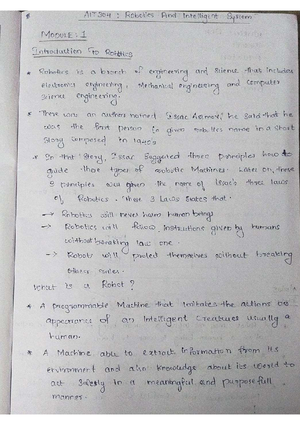 AIT304 : Robotics And Intelligent System
Module : 1
Introduction To Robotics
* Robotics is a branch of engineering and Science that includes
electronics engineering, Mechanical engineering and Computer
Science engineering.
* There was an author named "Isaac Asimov", he said that he
was the first person to given robotics name in a short
Story composed in
* In that Story, Isaac Suggested three principles how to
guide these types of robotic Machines. Later on, these
3 principles was given the name of Isaac's three laws
of Robotics. These 3 Laws States that.
-> Robotics will never harm human beings
-> Robotics will follow instructions given by humans
without breaking law one
-> Robots will themselves without breaking
other rules.
What is a Robot?
* A programmable Machine that imitates the actions or
appearance of an Intelligent Creatures usually a
human.
* A Machine able to extract information from its
environment and use knowledge about its world to
act Safely in a meaningful and purposefull
manner.